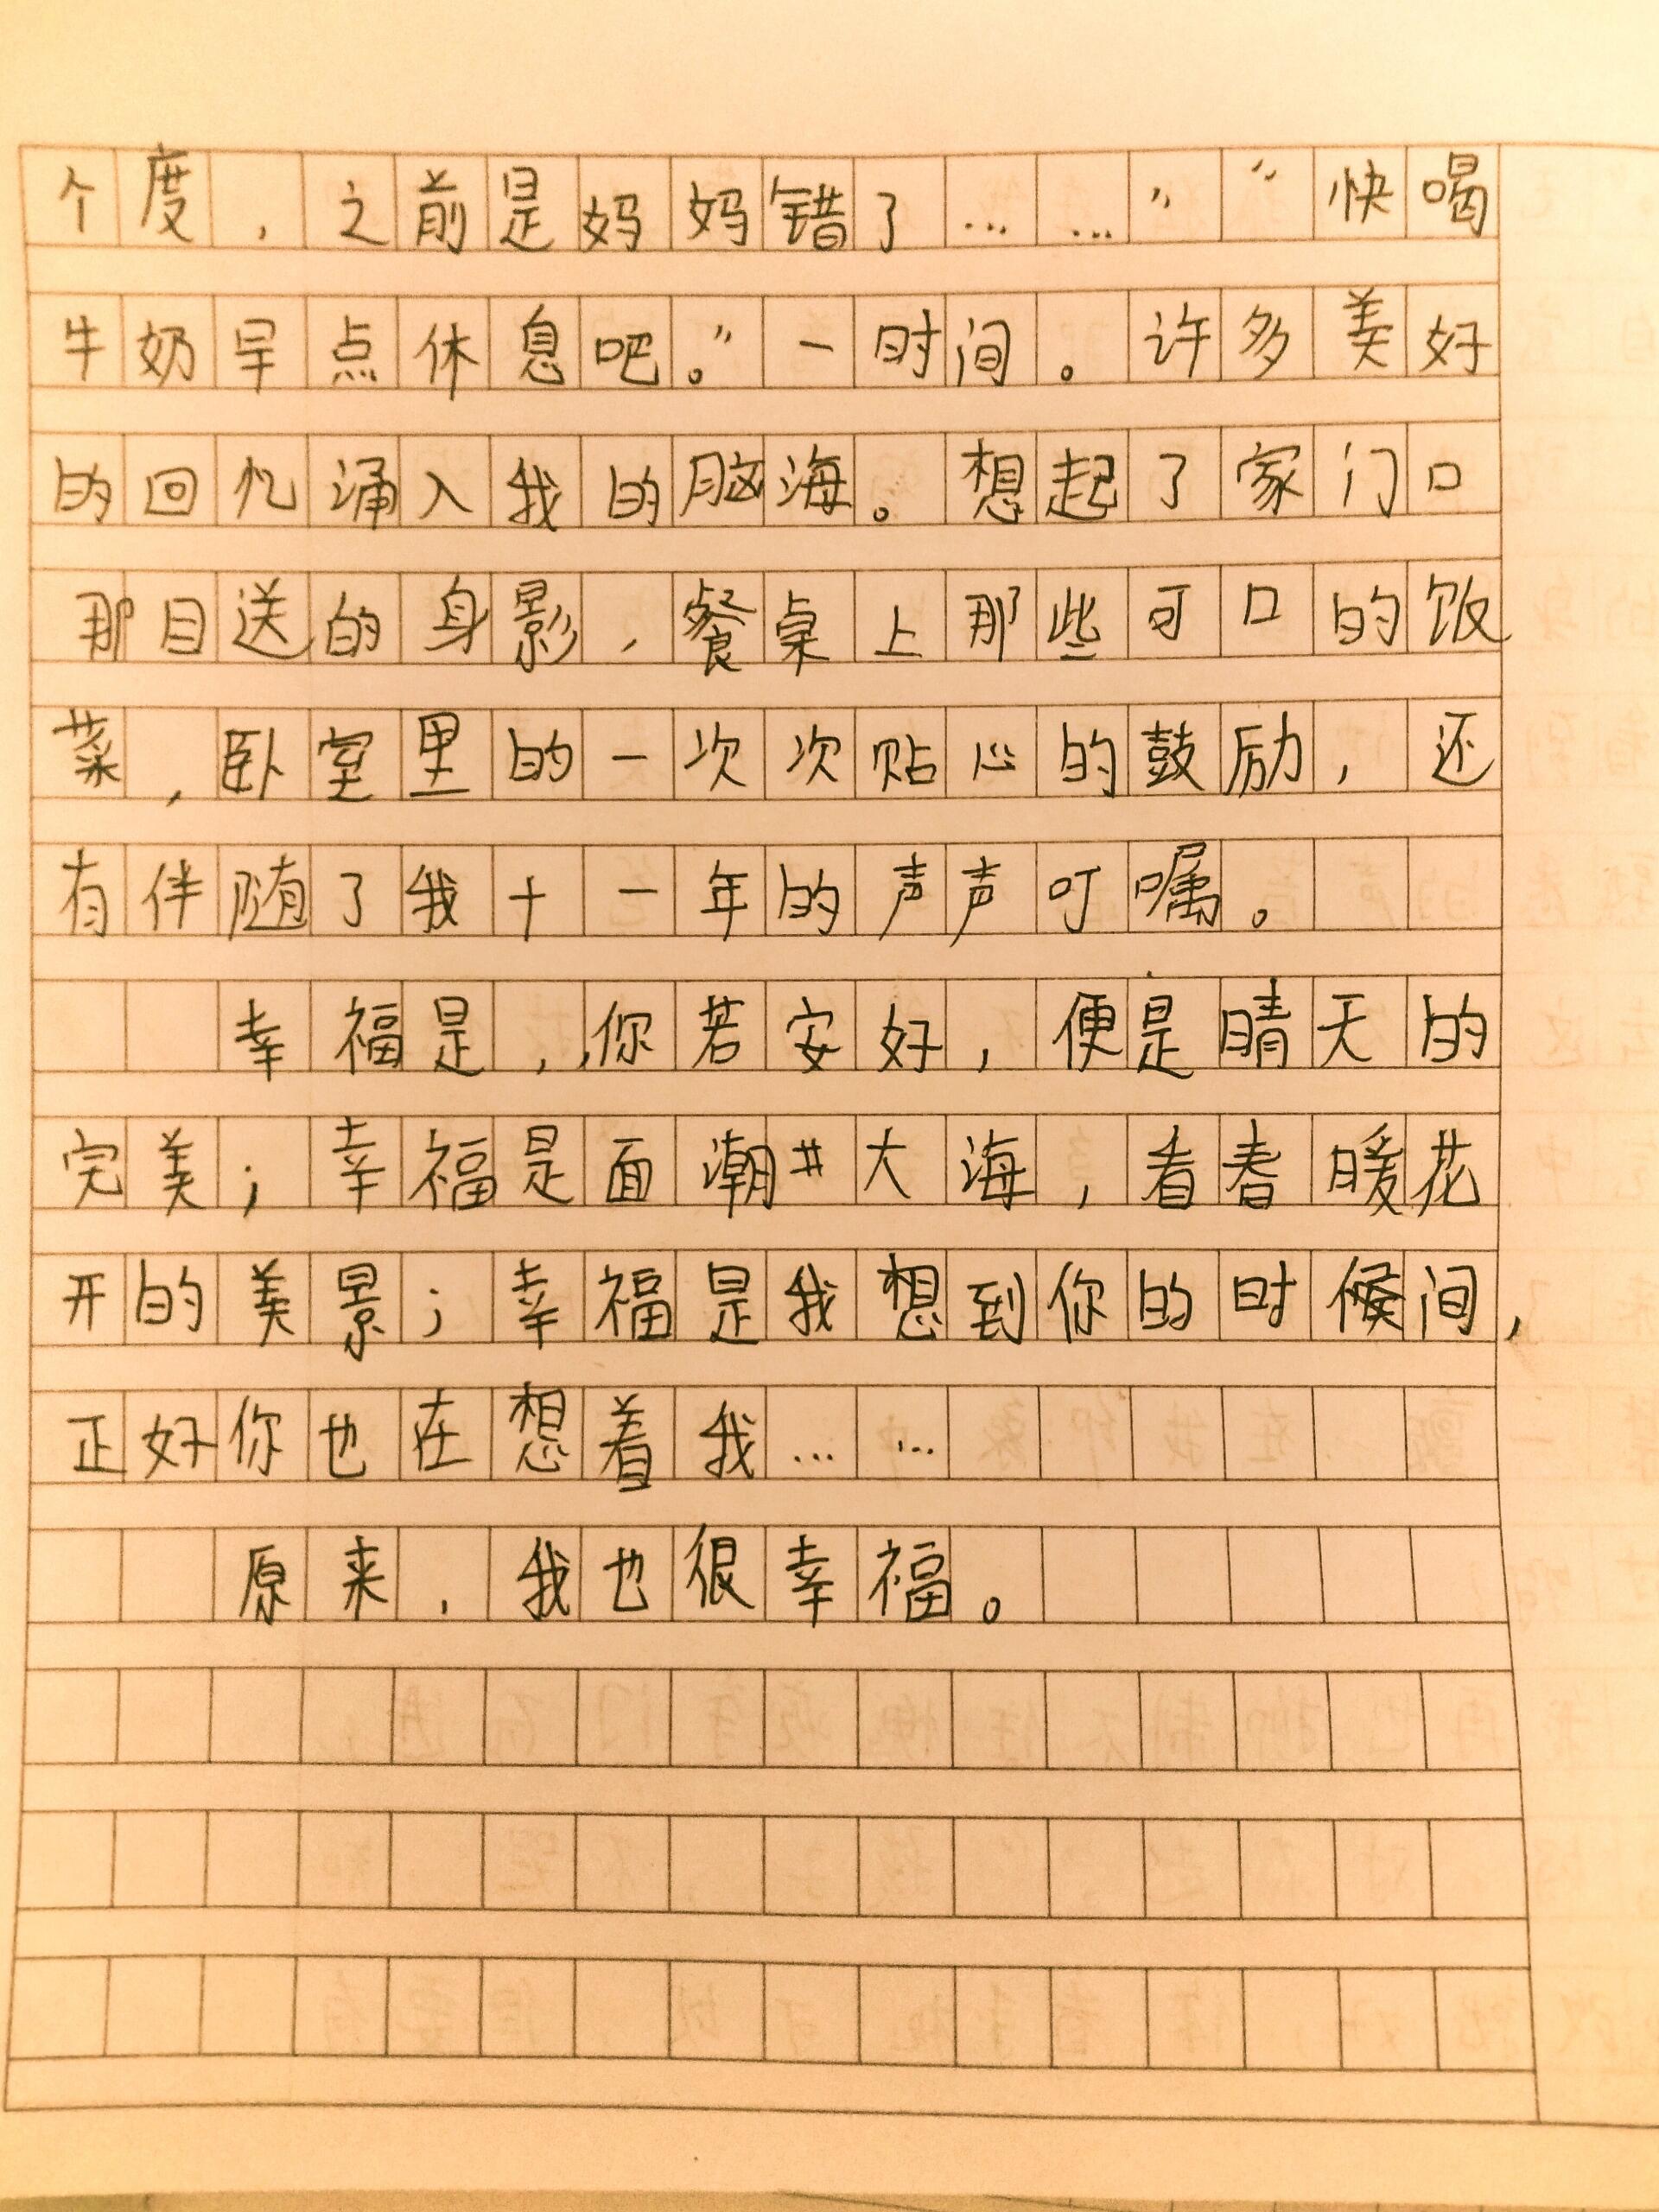 个度，之前是妈妈错了……”“快喝
牛奶早点休息吧。”一时间。许多美好
的回忆涌入我的脑海。想起了家门口
那目送的身影，餐桌上那些可口的饭
菜，卧室里的一次次贴心的鼓励，还
有伴随了我十一年的声声叮嘱。
幸福是，你若安好，便是晴天的
完美；幸福是面潮大海，看春暖花
开的美景；幸福是我想到你的时候间，
正好你也在想着我……
原来，我也很幸福。